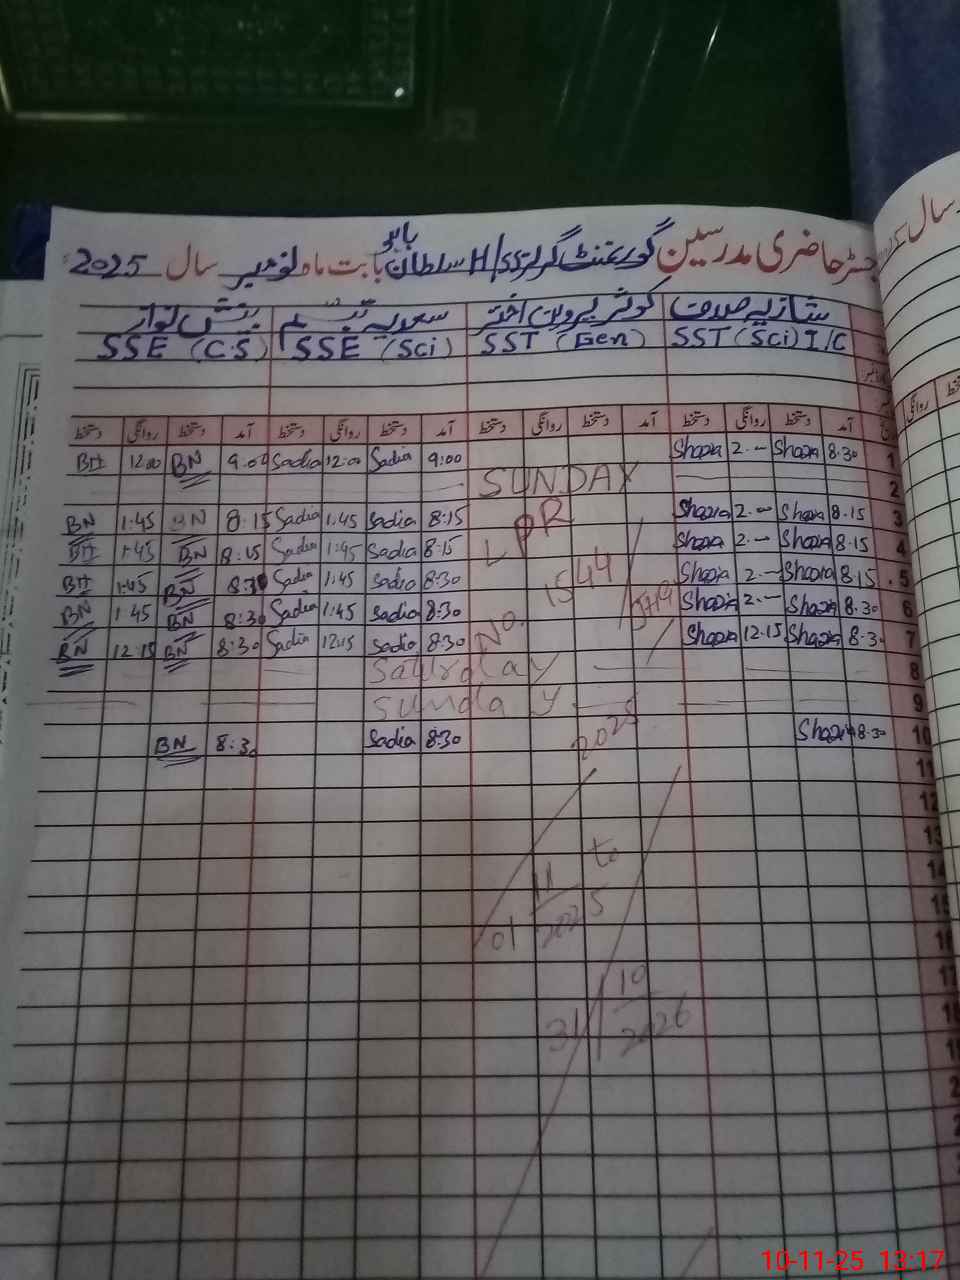 رجسٹر حاضری مدرسین گورنمنٹ گرلز H/SS سلطان باہو بابت ماہ نومبر سال 2025
شازیہ صداقت کوثر پروین اختر سعدیہ تبسم بینش نواز
SST (Sci) I/C SST (Gen) SSE (Sci) SSE (C.S)
آمد دستخط روانگی دستخط آمد دستخط روانگی دستخط آمد دستخط روانگی دستخط آمد دستخط روانگی دستخط
1 8.30 Shazia 2.— Shazia 9:00 Sadia 12:00 Sadia 9:00 BN 12:00 BN
2 SUNDAY
3 8.15 Shazia 2.— Shazia 8:15 Sadia 1:45 Sadia 8:15 BN 1:45 BN
4 8.15 Shazia 2.— Shazia 8:15 Sadia 1:45 Sadia 8:15 BN 1:45 BN
5 8.15 Shazia 2.— Shazia 8:30 Sadia 1:45 Sadia 8:30 BN 1:45 BN
6 8.30 Shazia 2.— Shazia 8:30 Sadia 1:45 Sadia 8:30 BN 1:45 BN
7 8.30 Shazia 12.15 Shazia 8:30 Sadia 12:15 Sadia 8:30 BN 12:15 BN
8 Saturday
9 Sunday
10 8.30 Shazia 8:30 Sadia 8:30 BN
LPR
No. 1544
2025
01 11 2025 to
31 10 2026
11
12
13
14
15
16
17
18
سال
روانگی
10-11-25 13:17